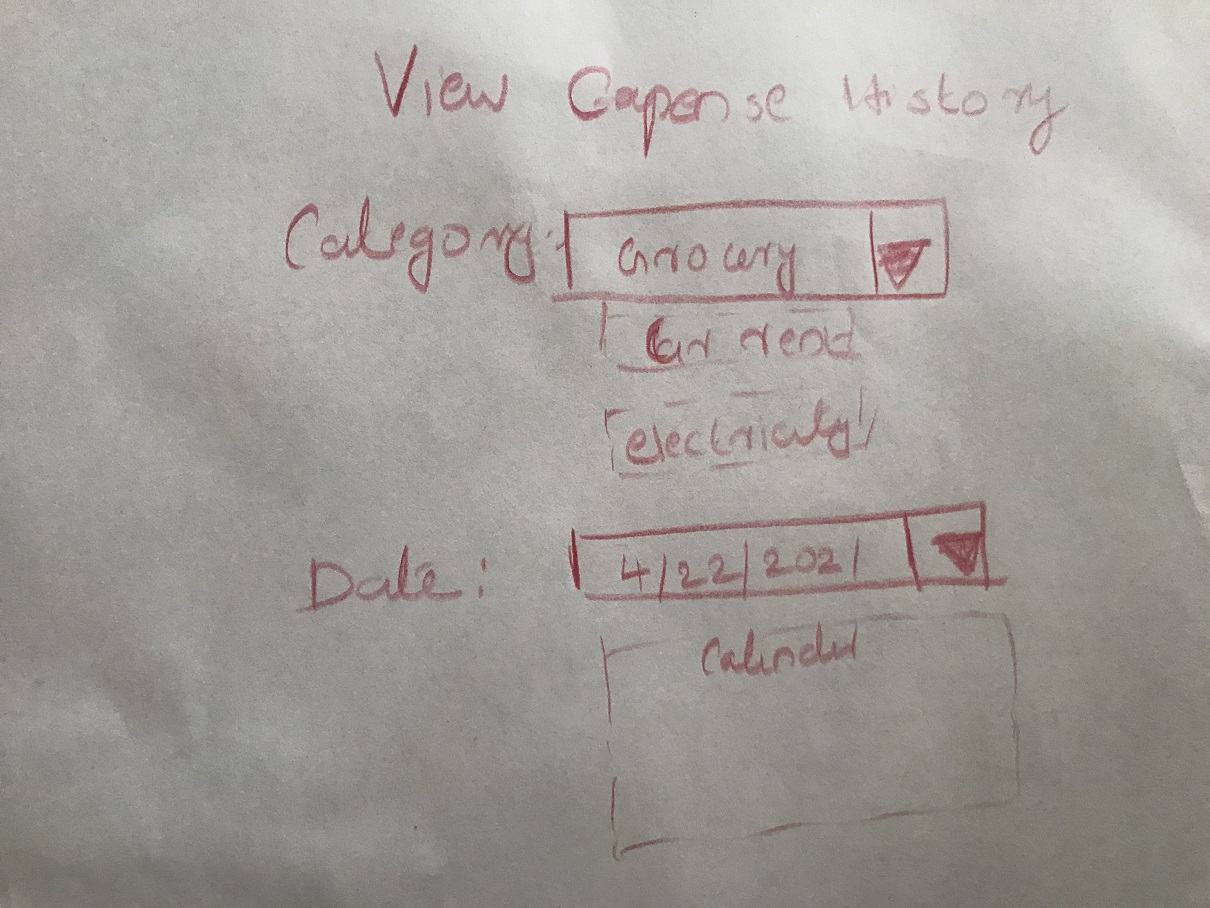 View Expense History
Category: Grocery
Car rent
electricity
Date: 4/22/2021
Calender